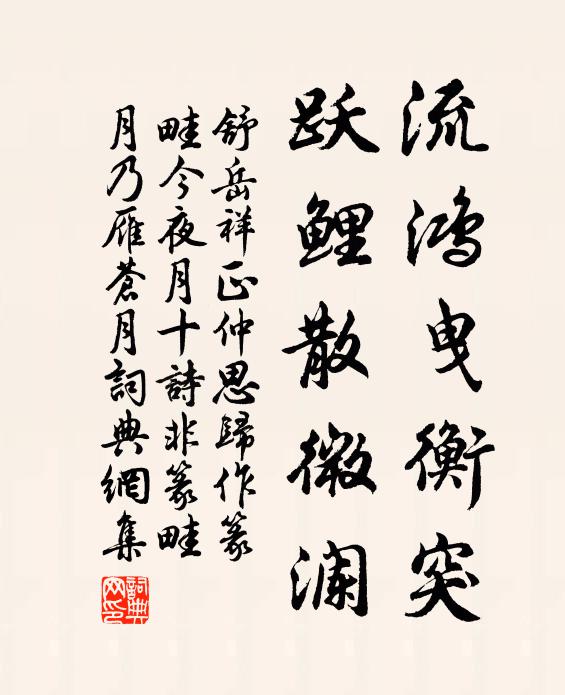 流鸿曳衡突
跃鲤散微澜
舒岳祥正仲思歸作篆
畦今夜月十詩非篆畦
月乃雁蒼月詞典網集
詞典
网印